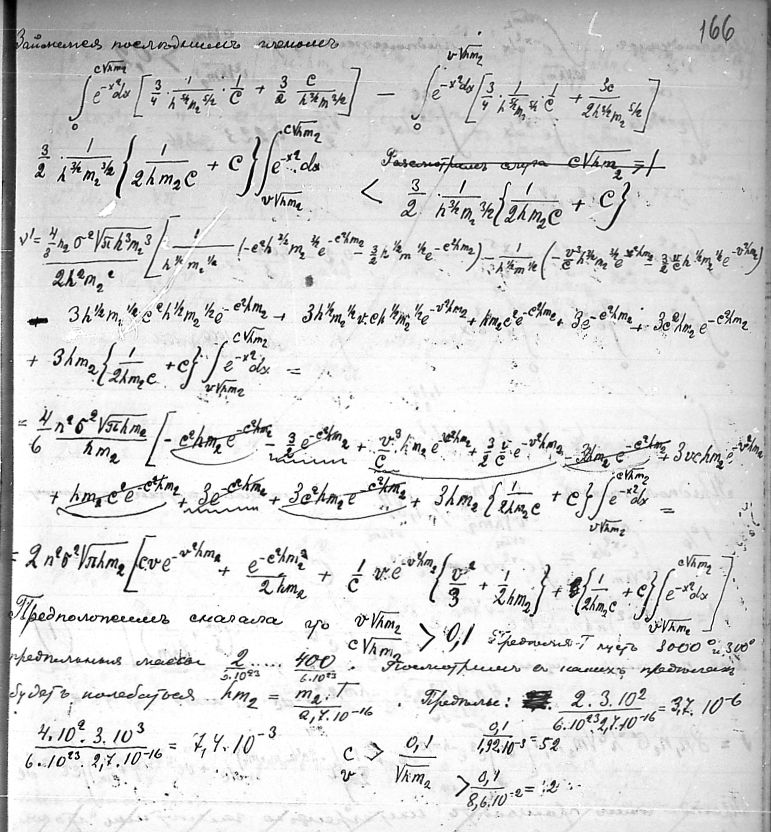 166
Займемся последнимъ членомъ
∫₀^{c√hm₂} e^{-x²}dx [3/4 · 1/(h^{5/2}m₂^{5/2}) · 1/c + 3/2 c/(h^{3/2}m^{3/2})] — ∫₀^{v√hm₂} e^{-x²}dx [3/4 · 1/(h^{5/2}m₂^{5/2}) · 1/c + 3c/(2h^{3/2}m₂^{5/2})]
3/2 · 1/(h^{3/2}m₂^{3/2}) {1/(2hm₂c) + c} ∫_{v√hm₂}^{c√hm₂} e^{-x²}dx < 3/2 · 1/(h^{3/2}m₂^{3/2}) {1/(2hm₂c) + c}
ν' = (4/3 n₂σ²√(πh³m₂³))/(2h²m₂²) [1/(h^{1/2}m₂^{1/2}) (-c²h^{3/2}m₂^{3/2}e^{-c²hm₂} - 3/2 h^{1/2}m^{1/2}e^{-c²hm₂}) - 1/(h^{1/2}m^{1/2}) (-v³/c h^{3/2}m₂^{3/2}e^{-v²hm₂} - 3/2 v/c h^{1/2}m₂^{1/2}e^{-v²hm₂})
- 3h^{1/2}m₂^{1/2}c²h^{1/2}m₂^{1/2}e^{-c²hm₂} + 3h^{1/2}m₂^{1/2}v.ch^{1/2}m₂^{1/2}e^{-v²hm₂} + hm₂c²e^{-c²hm₂} + 3e^{-c²hm₂} + 3c²hm₂e^{-c²hm₂}
+ 3hm₂{1/(2hm₂c) + c} ∫_{v√hm₂}^{c√hm₂} e^{-x²}dx =
= 4/6 n²σ²√(πhm₂)/(hm₂) [-c²hm₂e^{-c²hm₂} - 3/2 e^{-c²hm₂} + v³/c hm₂e^{-v²hm₂} + 3/2 v/c e^{-v²hm₂} - 3hm₂e^{-c²hm₂} + 3vchm₂e^{-v²hm₂}
+ hm₂c²e^{-c²hm₂} + 3e^{-c²hm₂} + 3c²hm₂e^{-c²hm₂} + 3hm₂{1/(2hm₂c) + c} ∫_{v√hm₂}^{c√hm₂} e^{-x²}dx =
= 2n²σ²√(πhm₂) [cve^{-v²hm₂} + e^{-c²hm₂}/(2hm₂) + 1/c v.e^{-v²hm₂} {v²/3 + 1/(2hm₂)} + {1/(2hm₂c) + c} ∫_{v√hm₂}^{c√hm₂} e^{-x²}dx]
Предположимъ сначала что v√hm₂ c√hm₂ > 0,1 Пределы T пусть 3000° и 300°
предельныя массы 2/(6.10²³) .... 400/(6.10²³). Посмотримъ въ какихъ пределахъ
будетъ колебаться hm₂ = m₂.T/(2,7.10⁻¹⁶). Пределы: 2.3.10²/(6.10²³ 2,7.10⁻¹⁶) = 3,7.10⁻⁶
4.10².3.10³/(6.10²³.2,7.10⁻¹⁶) = 7,4.10⁻³ c v > 0,1/√hm₂ 0,1/(1,92.10⁻³) = 52
> 0,1/(8,6.10⁻²) = 1,2